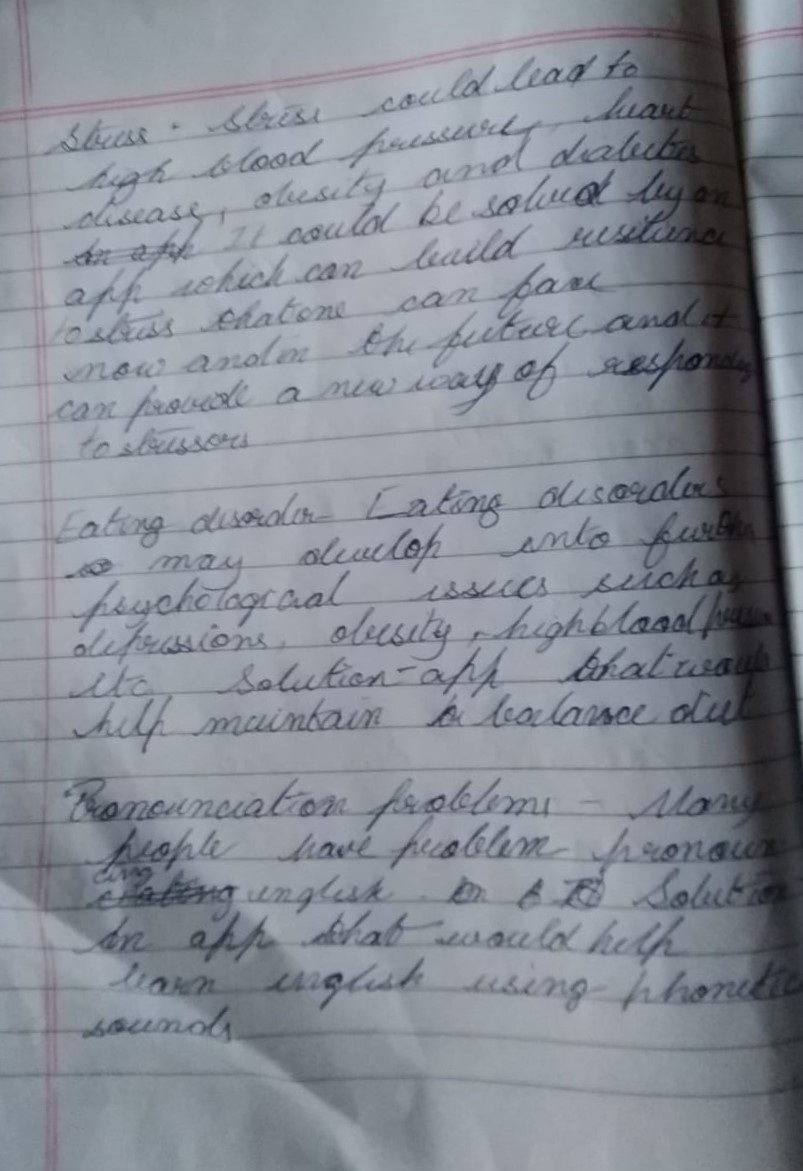 Stress - Stress could lead to
high blood pressure, heart
disease, obesity and diabetes
It could be solved by an
app which can build resilience
to stress that one can face
now and in the future and it
can provide a new way of responding
to stressors
Eating disorder - Eating disorders
may develop into further
psychological issues such as
depressions, obesity, high blood pressure
etc. Solution - app that would
help maintain a balance diet
Pronounciation problems - Many
people have problem pronoun
cing english. Solution
An app that would help
learn english using phonetic
sounds